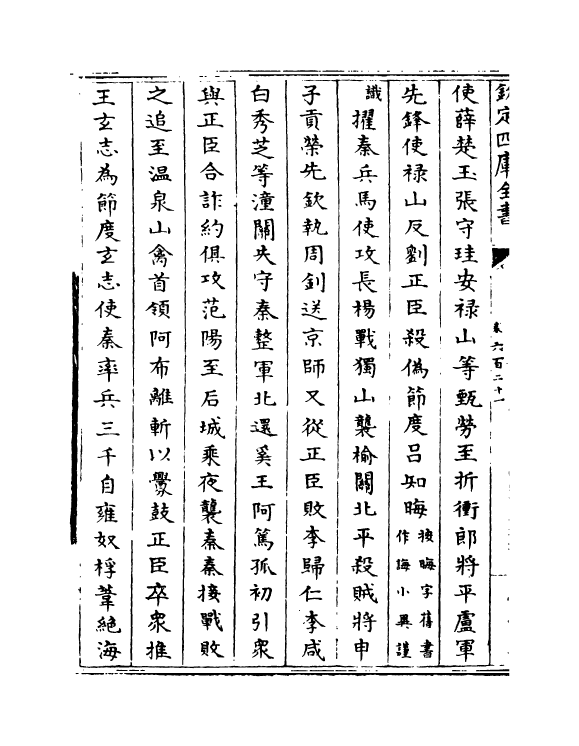 欽定四庫全書
卷六百二十一
使薛楚玉張守珪安禄山等甄勞至折衝郎將平盧軍
先鋒使禄山反劉正臣殺偽節度吕知晦按晦字舊書作誨小異謹
識擢秦兵馬使攻長楊戰獨山襲榆關北平殺賊將申
子貢榮先欽執周釗送京師又從正臣敗李歸仁李咸
白秀芝等潼關失守秦整軍北還奚王阿篤孤初引衆
與正臣合詐約俱攻范陽至后城乘夜襲秦秦接戰敗
之追至温泉山禽首領阿布離斬以釁鼓正臣卒衆推
王玄志為節度玄志使秦率兵三千自雍奴桴葦絶海